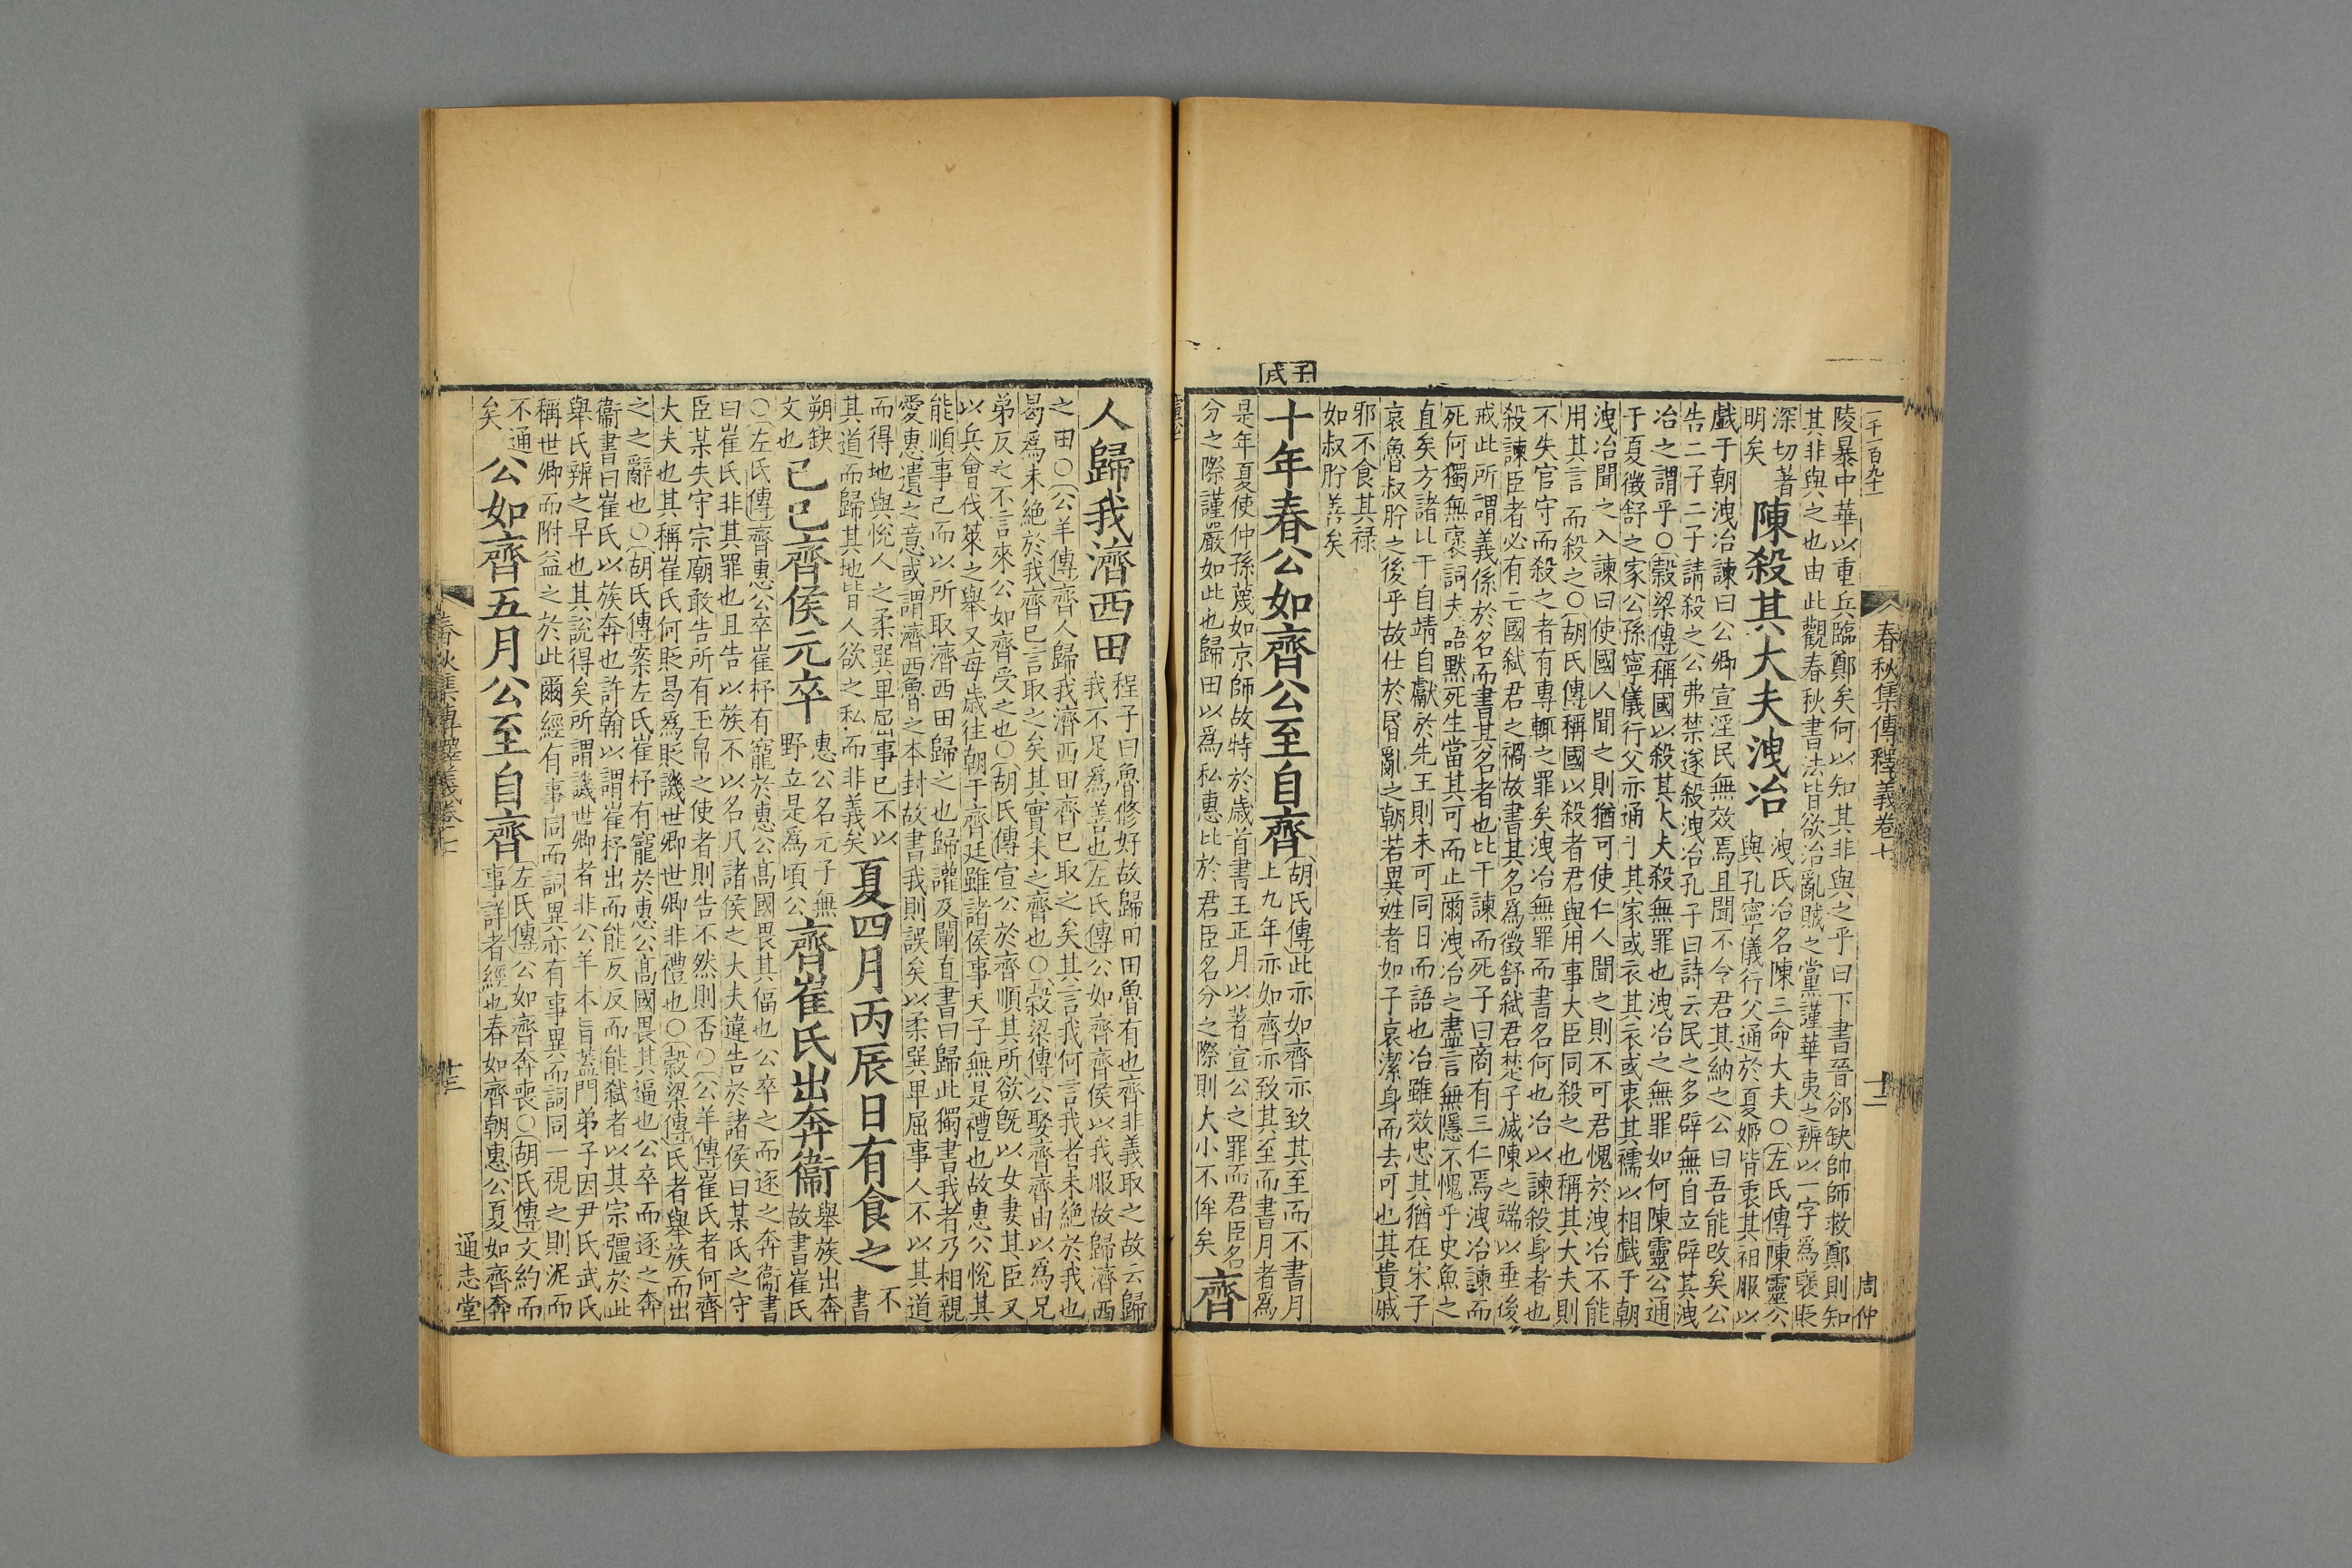 一千一百九十一
春秋集傳釋義卷十
十二
周仲
陵暴中華以重兵臨鄭矣何以知其非與之乎曰下書晉郤缺帥師救鄭則知
其非與之也由此觀春秋書法皆欲治亂賊之黨謹華夷之辨以一字爲襃貶
深切著
明矣
陳殺其大夫洩冶
洩氏冶名陳三命大夫○左氏傳陳靈公
與孔寧儀行父通於夏姬皆衷其衵服以
戲于朝洩冶諫曰公卿宣淫民無效焉且聞不令君其納之公曰吾能改矣公
告二子二子請殺之公弗禁遂殺洩冶孔子曰詩云民之多辟無自立辟其洩
冶之謂乎○穀梁傳稱國以殺其大夫殺無罪也洩冶之無罪如何陳靈公通
于夏徵舒之家公孫寧儀行父亦通于其家或衣其衣或衷其襦以相戲于朝
洩冶聞之入諫曰使國人聞之則猶可使仁人聞之則不可君愧於洩冶不能
用其言而殺之○胡氏傳稱國以殺者君與用事大臣同殺之也稱其大夫則
不失官守而殺之者有專輒之罪矣洩冶無罪而書名何也冶以諫殺身者也
殺諫臣者必有亡國弑君之禍故書其名爲徵舒弑君楚子滅陳之端以垂後
戒此所謂義係於名而書其名者也比干諫而死子曰商有三仁焉洩冶諫而
死何獨無襃詞夫語默死生當其可而止爾洩冶之盡言無隱不愧乎史魚之
直矣方諸比干自靖自獻於先王則未可同日而語也冶雖效忠其猶在宋子
哀魯叔肸之後乎故仕於昏亂之朝若異姓者如子哀潔身而去可也其貴戚
邪不食其祿
如叔肸善矣
壬戌
十年春公如齊公至自齊
胡氏傳此亦如齊亦致其至而不書月
上九年亦如齊亦致其至而書月者爲
是年夏使仲孫蔑如京師故特於歲首書王正月以著宣公之罪而君臣名
分之際謹嚴如此也歸田以爲私惠比於君臣名分之際則大小不侔矣
齊
人歸我濟西田
程子曰魯修好故歸田田魯有也齊非義取之故云歸
我不足爲善也左氏傳公如齊齊侯以我服故歸濟西
之田○公羊傳齊人歸我濟西田齊已取之矣其言我何言我者未絶於我也
曷爲未絶於我齊已言取之矣其實未之齊也○穀梁傳公娶齊齊由以爲兄
弟反之不言來公如齊受之也○胡氏傳宣公於齊順其所欲旣以女妻其臣又
以兵會伐萊之舉又每歲往朝于齊廷雖諸侯事天子無是禮也故惠公悅其
能順事己而以所取濟西田歸之也歸讙及闡直書曰歸此獨書我者乃相親
愛惠遺之意或謂濟西魯之本封故書我則誤矣以柔巽卑屈事人不以其道
而得地與悅人之柔巽卑屈事已不以
其道而歸其地皆人欲之私而非義矣
夏四月丙辰日有食之
不
書
朔缺
文也
己巳齊侯元卒
惠公名元子無
野立是爲頃公
齊崔氏出奔衞
舉族出奔
故書崔氏
○左氏傳齊惠公卒崔杼有寵於惠公高國畏其偪也公卒之而逐之奔衞書
曰崔氏非其罪也且告以族不以名凡諸侯之大夫違告於諸侯曰某氏之守
臣某失守宗廟敢告所有玉帛之使者則告不然則否○公羊傳崔氏者何齊
大夫也其稱崔氏何貶曷爲貶譏世卿世卿非禮也○穀梁傳氏者舉族而出
之之辭也○胡氏傳案左氏崔杼有寵於惠公高國畏其逼也公卒而逐之奔
衞書曰崔氏以族奔也許翰以謂崔杼出而能反反而能弑者以其宗彊於此
舉氏辨之早也其說得矣所謂譏世卿者非公羊本旨蓋門弟子因尹氏武氏
稱世卿而附益之於此爾經有事同而詞異亦有事異而詞同一視之則泥而
不通
矣
公如齊五月公至自齊
左氏傳公如齊奔喪○胡氏傳文約而
事詳者經也春如齊朝惠公夏如齊奔
春秋集傳釋義卷十
十三
通志堂